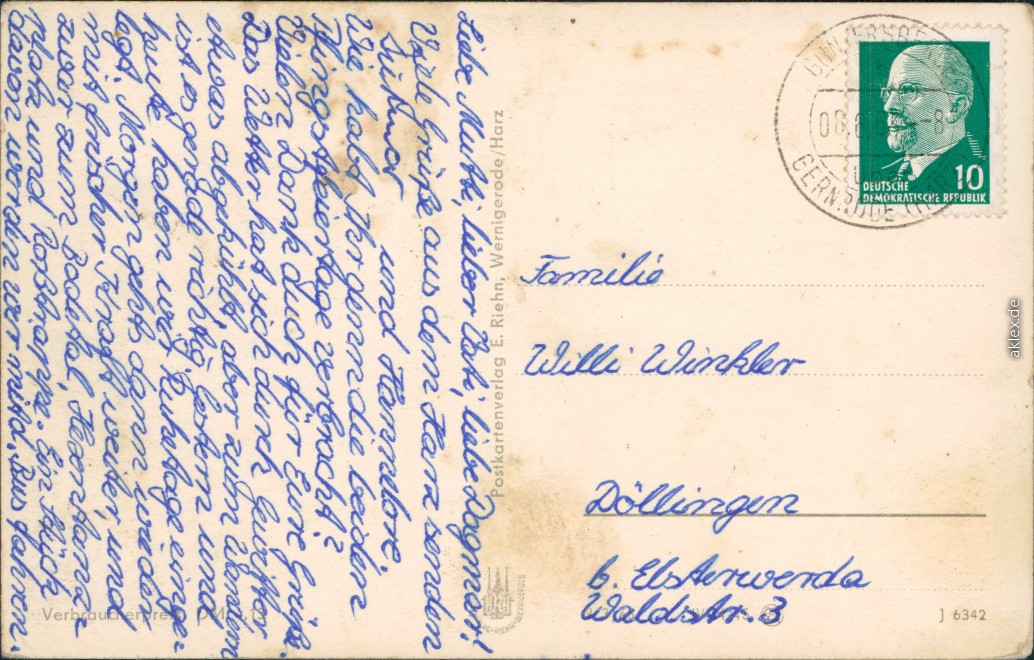 Liebe Mutti, lieber Vati, liebe Dagmar!
Viele Grüße aus dem Harz senden
Lüthmar und Hannelore.
Wie habt Ihr denn die beiden
Pfingstfeiertage verbracht?
Vielen Dank auch für Eure Grüße.
Das Wetter hat sich durch Gewitter
etwas abgekühlt, aber zum Wandern
ist es gerade richtig. Gestern und
heute haben wir Ruhetage einge-
legt. Morgen gehts dann wieder
mit frischer Kraft weiter, und
zwar zum Bodetal, Hexentanz-
platz und Roßtrappe. Ein Stück
davon werden wir mit d. Bus fahren.
Postkartenverlag E. Riehn, Wernigerode/Harz
Verbraucherpreis DM 0,15
GÜNTERSBERGE
08. -8
GERNRODE (HARZ)
DEUTSCHE
DEMOKRATISCHE REPUBLIK
10
Familie
Willi Winkler
Döllingen
b. Elsterwerda
Waldstr. 3
J 6342
aklex.de